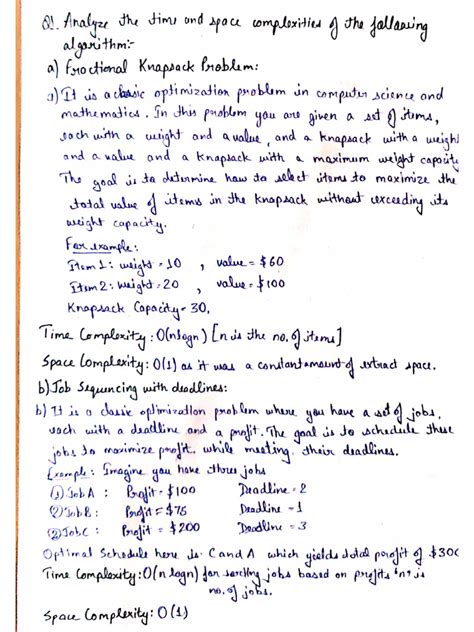 Q1. Analyze the time and space complexities of the following
algorithm:-
a) Fractional Knapsack Problem:
a) It is a classic optimization problem in computer science and
mathematics. In this problem you are given a set of items,
each with a weight and a value, and a knapsack with a weight
and a value and a knapsack with a maximum weight capacity
The goal is to determine how to select items to maximize the
total value of items in the knapsack without exceeding its
weight capacity.
For example:
Item 1: weight = 10 , value = $60
Item 2: weight = 20 , value = $100
Knapsack Capacity = 30.
Time Complexity: O(nlogn) [n is the no. of items]
Space Complexity: O(1) as it was a constant amount of extract space.
b) Job Sequencing with deadlines:
b) It is a classic optimization problem where you have a set of jobs,
each with a deadline and a profit. The goal is to schedule these
jobs to maximize profit while meeting their deadlines.
Example: Imagine you have three jobs
① Job A : Profit = $100 Deadline = 2
② Job B : Profit = $75 Deadline = 1
② Job C : Profit = $200 Deadline = 3
Optimal Schedule here is C and A which yields total profit of $300
Time Complexity: O(n logn) for sorting jobs based on profits 'n' is
no. of jobs.
Space Complexity: O(1)